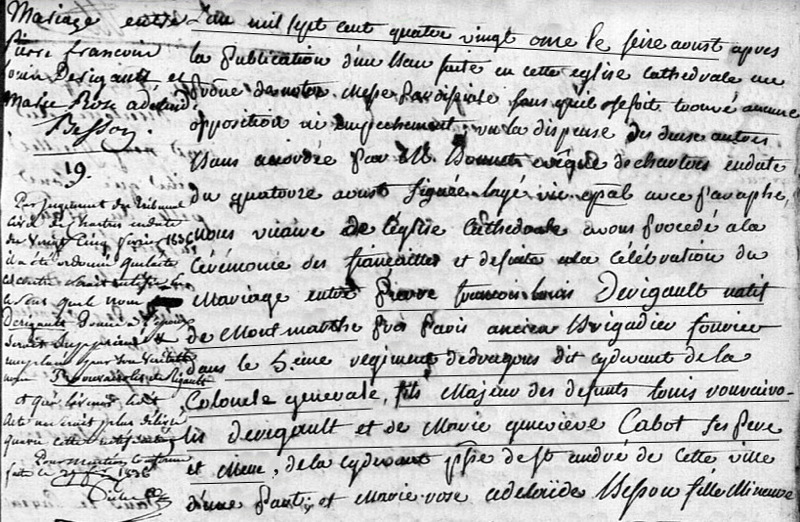 Mariage entre
Pierre francois
Louis Derigault et
Marie Rose adelaide
Besson.
19.
Par Jugement du Tribunal
Civil de Chartres en date
du Vingt Cinq fevrier 1836
il a été ordonné que
le nom
Derigault donné à l'époux
Serait Supprimé &
remplacé par son Veritable
nom de Rigault
et que
Acte ne serait plus délivré
qu'avec cette
Pour Mention Conforme
fait le 1836
L'an mil sept cent quatre vingt onze le seize aoust apres
la publication d'un ban faite en cette eglise cathedrale au
prône de notre Messe paroissiale sans quil se soit trouvé aucune
opposition ni empechement, vu la dispense des deux autres
bans accordée par M. Bonnet evêque de chartres en date
du quatorze aoust signée Lagé vic. epal avec paraphe,
nous vicaire de l'église Cathedrale avons procedé a la
Cérémonie des fiançailles et desuite a la célébration du
Mariage entre pierre francois louis Derigault natif
de Montmarthe près paris ancien Brigadier fourier
dans le 5.eme regiment de dragons dit cydevant de la
Colonele generale, fils Majeur des defunts louis vouvairo-
lis derigault et de Marie geneviève Cabot ses pere
et Mere, de la cydevant psse de st andré de cette ville
d'une part; et Marie rose adelaïde Besson fille Mineure